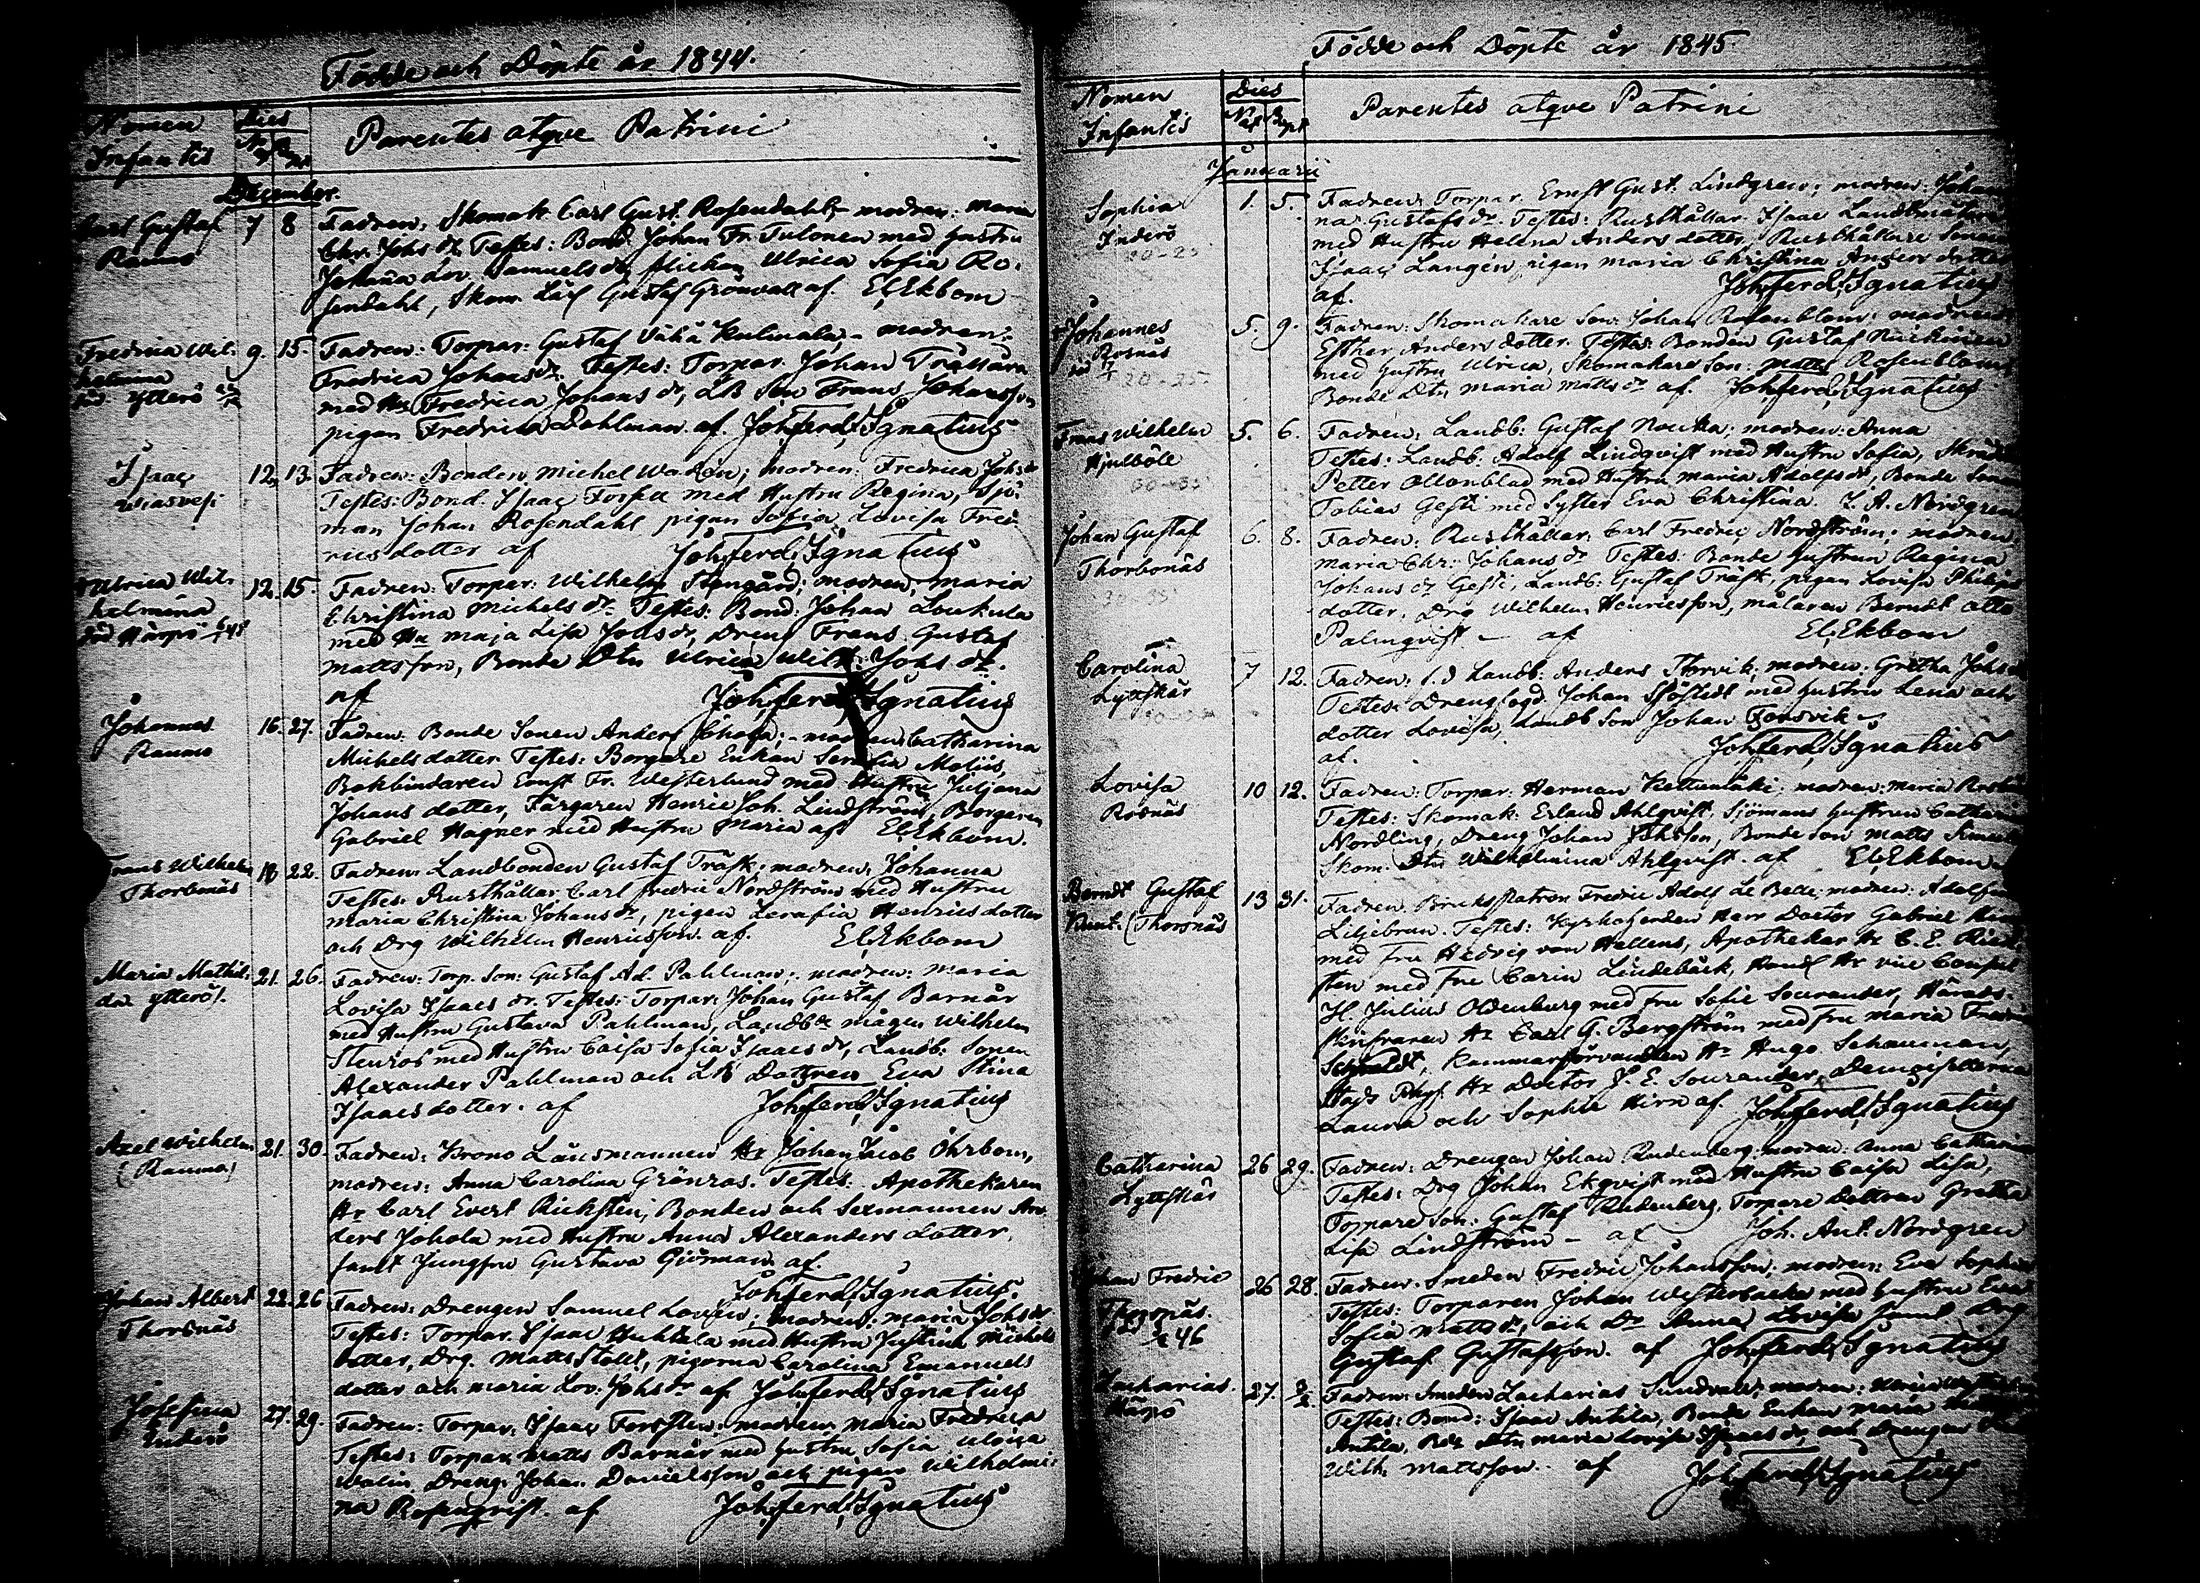 Födde och Döpte år 1844.
Nomen Infantis
Dies
Nat Bapt
Parentes atque Patrini
December.
Carl Gustaf
Raumo
7 8
Fadren, Skomak. Carl Gust. Rosendahl,- modren: Maria
Chr. Johs dr. Testes: Bond. Johan Fr. Tulonen med hustru
Johanna Lov. Samuels dr, flickan Ulrica Sofia Ro-
sendahl, Skom. Lärl Gustaf Grönvall af. El. Ekbom
Fredrica Wil-
helmina
Ytterö
9. 15.
Fadren: Torpar: Gustaf Vähä Kulmala,- modren:
Fredrica Johans dr. Testes: Torpar. Johan
med Hu Fredrica Johans dr, LB Son Frans Johansson
pigan Fredrica Dahlman. af. Joh. Ferd. Ignatius
Isaac
12. 13.
Fadren: Bonden Michel Waden; modren: Fredrica Johs dr
Testes: Bond. Isaac med Hustru Regina, Sjö-
man Johan Rosendahl pigan Sofia Lovisa Fred-
rics dotter af Joh. Ferd. Ignatius
Ulrica Wil-
helmina
död Härpö
12. 15.
Fadren: Torpar: Wilhelm Stengård; modren, Maria
Christina Michels dr. Testes: Bond. Johan Loukula
med Hu Maja Lisa Johs dr, Dreng Frans Gustaf
Mattsson, Bonde Dtn Ulrica Wilh. Johs dr.
af Joh. Ferd. Ignatius
Johannes
Raumo
16. 27.
Fadren. Bonde Sonen Anders Johola; - modren: Catharina
Michels dotter. Testes: Borgare Enkan Serafia Moliis,
Bokbindaren Ernst Fr. Westerlund med Hustru Juljana
Johans dotter, Färgaren Henric Joh. Lindström, Borgaren
Gabriel Hagner med Hustru Maria af El. Ekbom.
Frans Wilhelm
Thorbonäs
18 22.
Fadren: Landbonden Gustaf Träsk; modren, Johanna
Testes: Rusthållar. Carl Fredric Nordström med Hustru
Maria Christina Johans dr, pigan Serafia Henrics dotter
och Drg Wilhelm Henricsson. af. El. Ekbom
Maria Mathil-
da Ytterö.
21. 26.
Fadren: Torp. Son: Gustaf Ad. Pahlman; modren: Maria
Lovisa Isaacs dr. Testes: Torpar: Johan Gustaf Barnår
med Hustru Gustava Pahlman, Landb: mågen Wilhelm
Stenros med Hustru Caisa Sofia Isaacs dr, Landb: Sonen
Alexander Pahlman och LB Dottren Eva Stina
Isaacs dotter. af Joh. Ferd. Ignatius
Axel Wilhelm
(Raumo.)
21. 30.
Fadren: Krono Länsmannen Hr Johan Jacob Öhrbom,
modren: Anna Carolina Grönros. Testes: Apothekaren
Hr Carl Evert Rickstén; Bonden och Sexmannen An-
ders Johola med Hustru Anna Alexanders dotter,
samt Jungfru Gustava Gjörman af.
Joh. Ferd. Ignatius.
Johan Albert
Thorsnäs
22. 26
Fadren: Drengen Samuel Lovén; modren: Maria Johs dr
Testes: Torpar. Isaac Huhtala med Hustru Justina Michels
dotter, Drg. Matts Stolt, pigorna Carolina Emanuels
dotter och Maria Lov: Johs dr af Joh. Ferd. Ignatius
Josefina
Enderö
27. 29.
Fadren: Torpar. Isaac Forsten; modren, Maria Fredrica
Testes: Torpar Matts Barnår med hustru Sofia Ulrica
Walin Dreng. Johan Davidsson och pigan Wilhelmi-
na Rosenqvist. af Joh. Ferd. Ignatius
Födde och Döpte år 1845.
Nomen
Infantis
Dies
Nat Bapt
Parentes atque Patrini
Januarii
Sophia
Inderö
1. 5.
Fadren, Torpar. Ernst Gust. Lindgren; modren: Johan
na Gustafs dr. Testes: Rusthållar. Isaac
med Hustru Helena Anders dotter, Rusthållare Sonen
Isaac Langén, pigan Maria Christina Anders dotter
af. Joh. Ferd. Ignatius
Johannes
Rosnäs
20-25.
5. 9.
Fadren: Skomakare Son: Johan Rosenblom; modren
Esther Anders dotter. Testes: Bonden Gustaf
med hustru Ulrica, Skomakare Son: Matts Rosenblom
Bonde Dtn Maria Matts dr af. Joh. Ferd. Ignatius
Frans Wilhelm
Hjulböle
30-35
5. 6.
Fadren, Landb: Gustaf Noukka; modren: Anna
Testes: Landb: Adolf Lindqvist med Hustru Sofia,
Petter Ollonblad med Hustru Maria Adolfs dr, Bonde Sonen
Tobias Gesti med Syster Eva Christina. J. A. Nordgren
Johan Gustaf
Thorbonäs
6. 8.
Fadren, Rusthållar: Carl Fredric Nordström; modren:
Maria Chr: Johans dr. Testes: Bonde hustrun Regina
Johans dr Gesti, Landb: Gustaf Träsk, pigan Lovisa Philips
dotter, Drg Wilhelm Henricsson, målaren Berndt Otto
Palmqvist. - af El. Ekbom
Carolina
Lyttskär
7 12.
Fadren, f.d Landb: Anders Storvik; modren: Gretha Johs dr
Testes: Drengfogd. Johan Sjöstedt med hustru Lena och
dotter Lovisa, Landb Son Johan Forsvik
af. Joh. Ferd. Ignatius
Lovisa
Rosnäs
10 12.
Fadren: Torpar: Herman modren: Maria
Testes: Skomak: Erland Ahlqvist, Sjömans hustrun Catharina
Nordling, Dreng Johan Johsson, Bonde Son Matts
Skom. Dtn Wilhelmina Ahlqvist. af El. Ekbom
Berndt Gustaf
Knut. (Thorsnäs
13 31.
Fadren. Bruks Patron Fredric Adolf Le Bell; modren: Adolfina
Liljebrun. Testes: Kyrkoherden Herr Doctor Gabriel
med Fru Hedvig von Hellens, Apothekar Hr C. E. Rick-
sten med Fru Carin Lindebäck, Handl Hr vice Consul
H. Julius Oldenburg med Fru Sofie Sourander, Härads-
skrifvaren Hr Carl G. Bergström med Fru Maria Fredrica
Kammarförvandten Hr Hugo Schauman,
Stads Phys. Hr Doctor J. E. Sourander, Demoisellerna
Laura och Sophie Hirn af. Joh. Ferd. Ignatius
Catharina
Lyttskär
26 29.
Fadren: Drengen Johan Rudenberg; modren: Anna Catharina
Testes: Drg Johan Ekqvist med Hustru Caisa Lisa,
Torpare Son: Gustaf Rudenberg, Torpare Dottren Gretha
Lisa Lindström - af Joh. Ant. Nordgren
Johan Fredric
Thorsnäs.
46
26 28.
Fadren: Smeden Fredric Johansson; modren: Eva Sophia
Testes: Torparen Johan Westerbacka med hustru Eva
Sofia Matts dr, och Dr Anna Lovisa samt Drg
Gustaf Gustafsson. af Joh. Ferd. Ignatius
Zacharias.
Härpö
27. 2/2
Fadren: Smeden Zacharias Sundvall; modren: Maria
Testes: Bond: Isaac Antila, Bonde Enkan Maria
Antila, Bdr Dtn Maria Lovisa Isaacs dr, och Drengen
Wilh. Mattsson. af Joh. Ferd. Ignatius